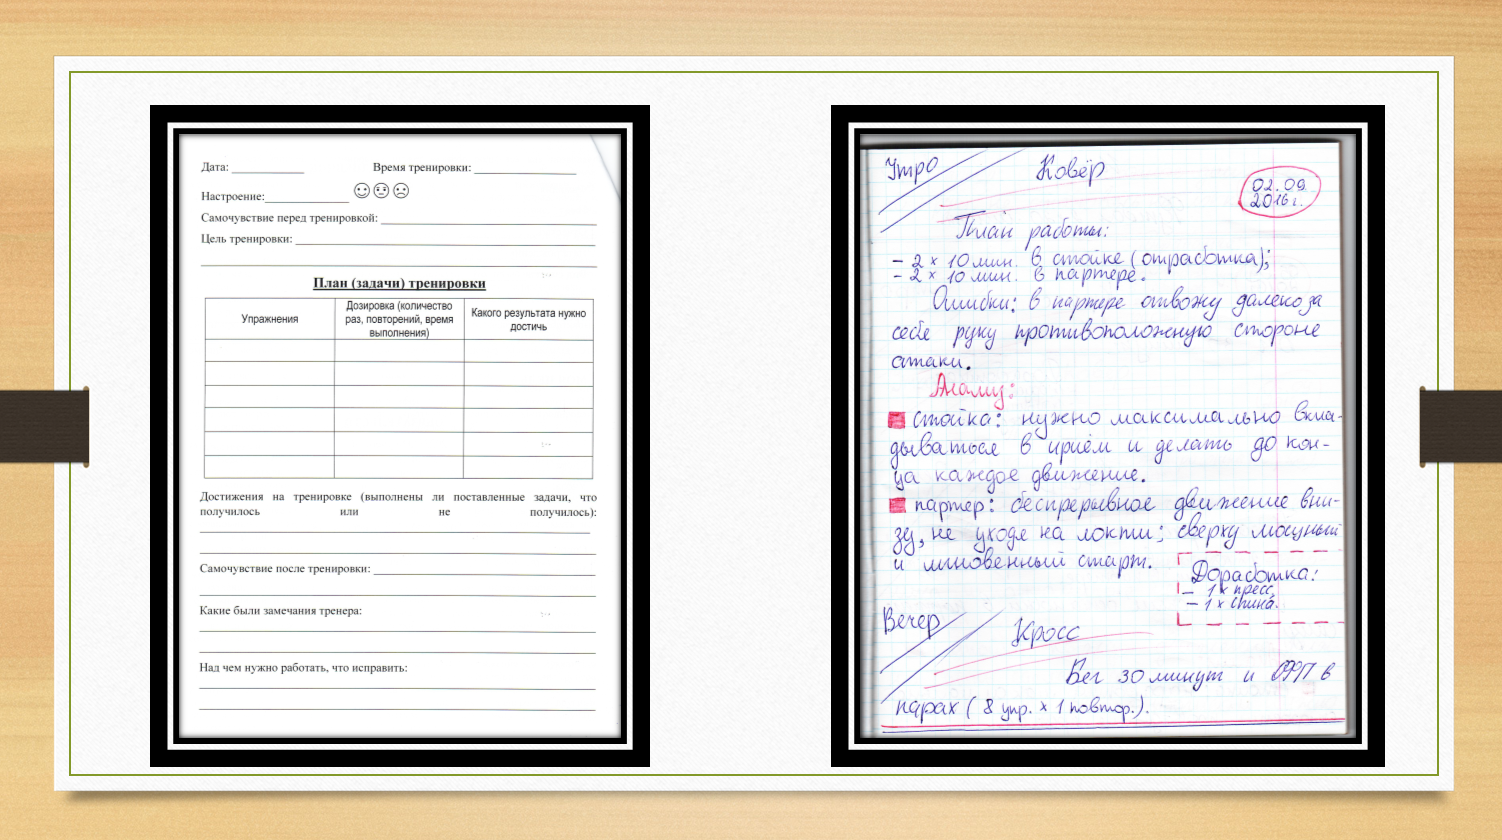 Дата: ____________ Время тренировки: _________________
Настроение:______________
Самочувствие перед тренировкой: ____________________________________
Цель тренировки: __________________________________________________
План (задачи) тренировки
Упражнения
Дозировка (количество
раз, повторений, время
выполнения)
Какого результата нужно
достичь
Достижения на тренировке (выполнены ли поставленные задачи, что
получилось или не получилось):
Самочувствие после тренировки: _____________________________________
Какие были замечания тренера:
Над чем нужно работать, что исправить:
Утро Ковёр
02.09.
2016г.
План работы:
– 2 × 10 мин. в стойке (отработка);
– 2 × 10 мин. в партере.
Ошибки: в партере отвожу далеко за
себе руку противоположную стороне
атаки.
стойка: нужно максимально вкла-
дываться в приём и делать до кон-
ца каждое движение.
партер: беспрерывное движение вни-
зу, не уходя на локти; сверху мощный
и мгновенный старт.
Доработка:
– 1 × пресс,
– 1 × спина.
Вечер Кросс
Бег 30 минут и ОФП в
парах (8 упр. × 1 повтор.).